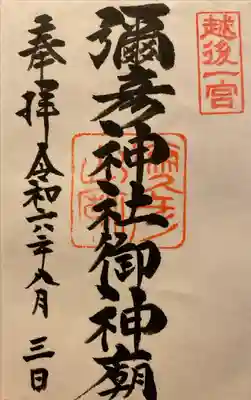 越後一宮
彌彦神社御神廟
奉拝令和六年八月三日